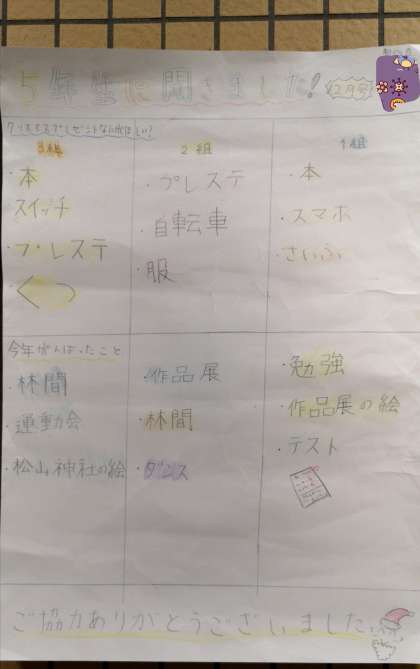 5年生に聞きました!
12月号
クリスマスプレゼントなにがほしい?
3組
2組
1組
・本
スイッチ
・プレステ
・くつ
・プレステ
・自転車
・服
・本
・スマホ
・さいふ
今年がんばったこと
・林間
・運動会
・松山神社の絵
・作品展
・林間
・ダンス
・勉強
・作品展の絵
・テスト
ご協力ありがとうございました